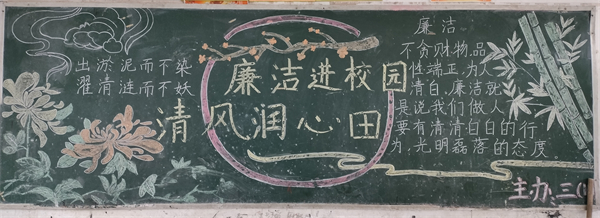 出淤泥而不染
濯清涟而不妖
廉洁进校园
清风润心田
廉洁
不贪财物,品
性端正,为人
清白,廉洁就
是说我们做人
要有清清白白的行
为,光明磊落的态度
主办:三(